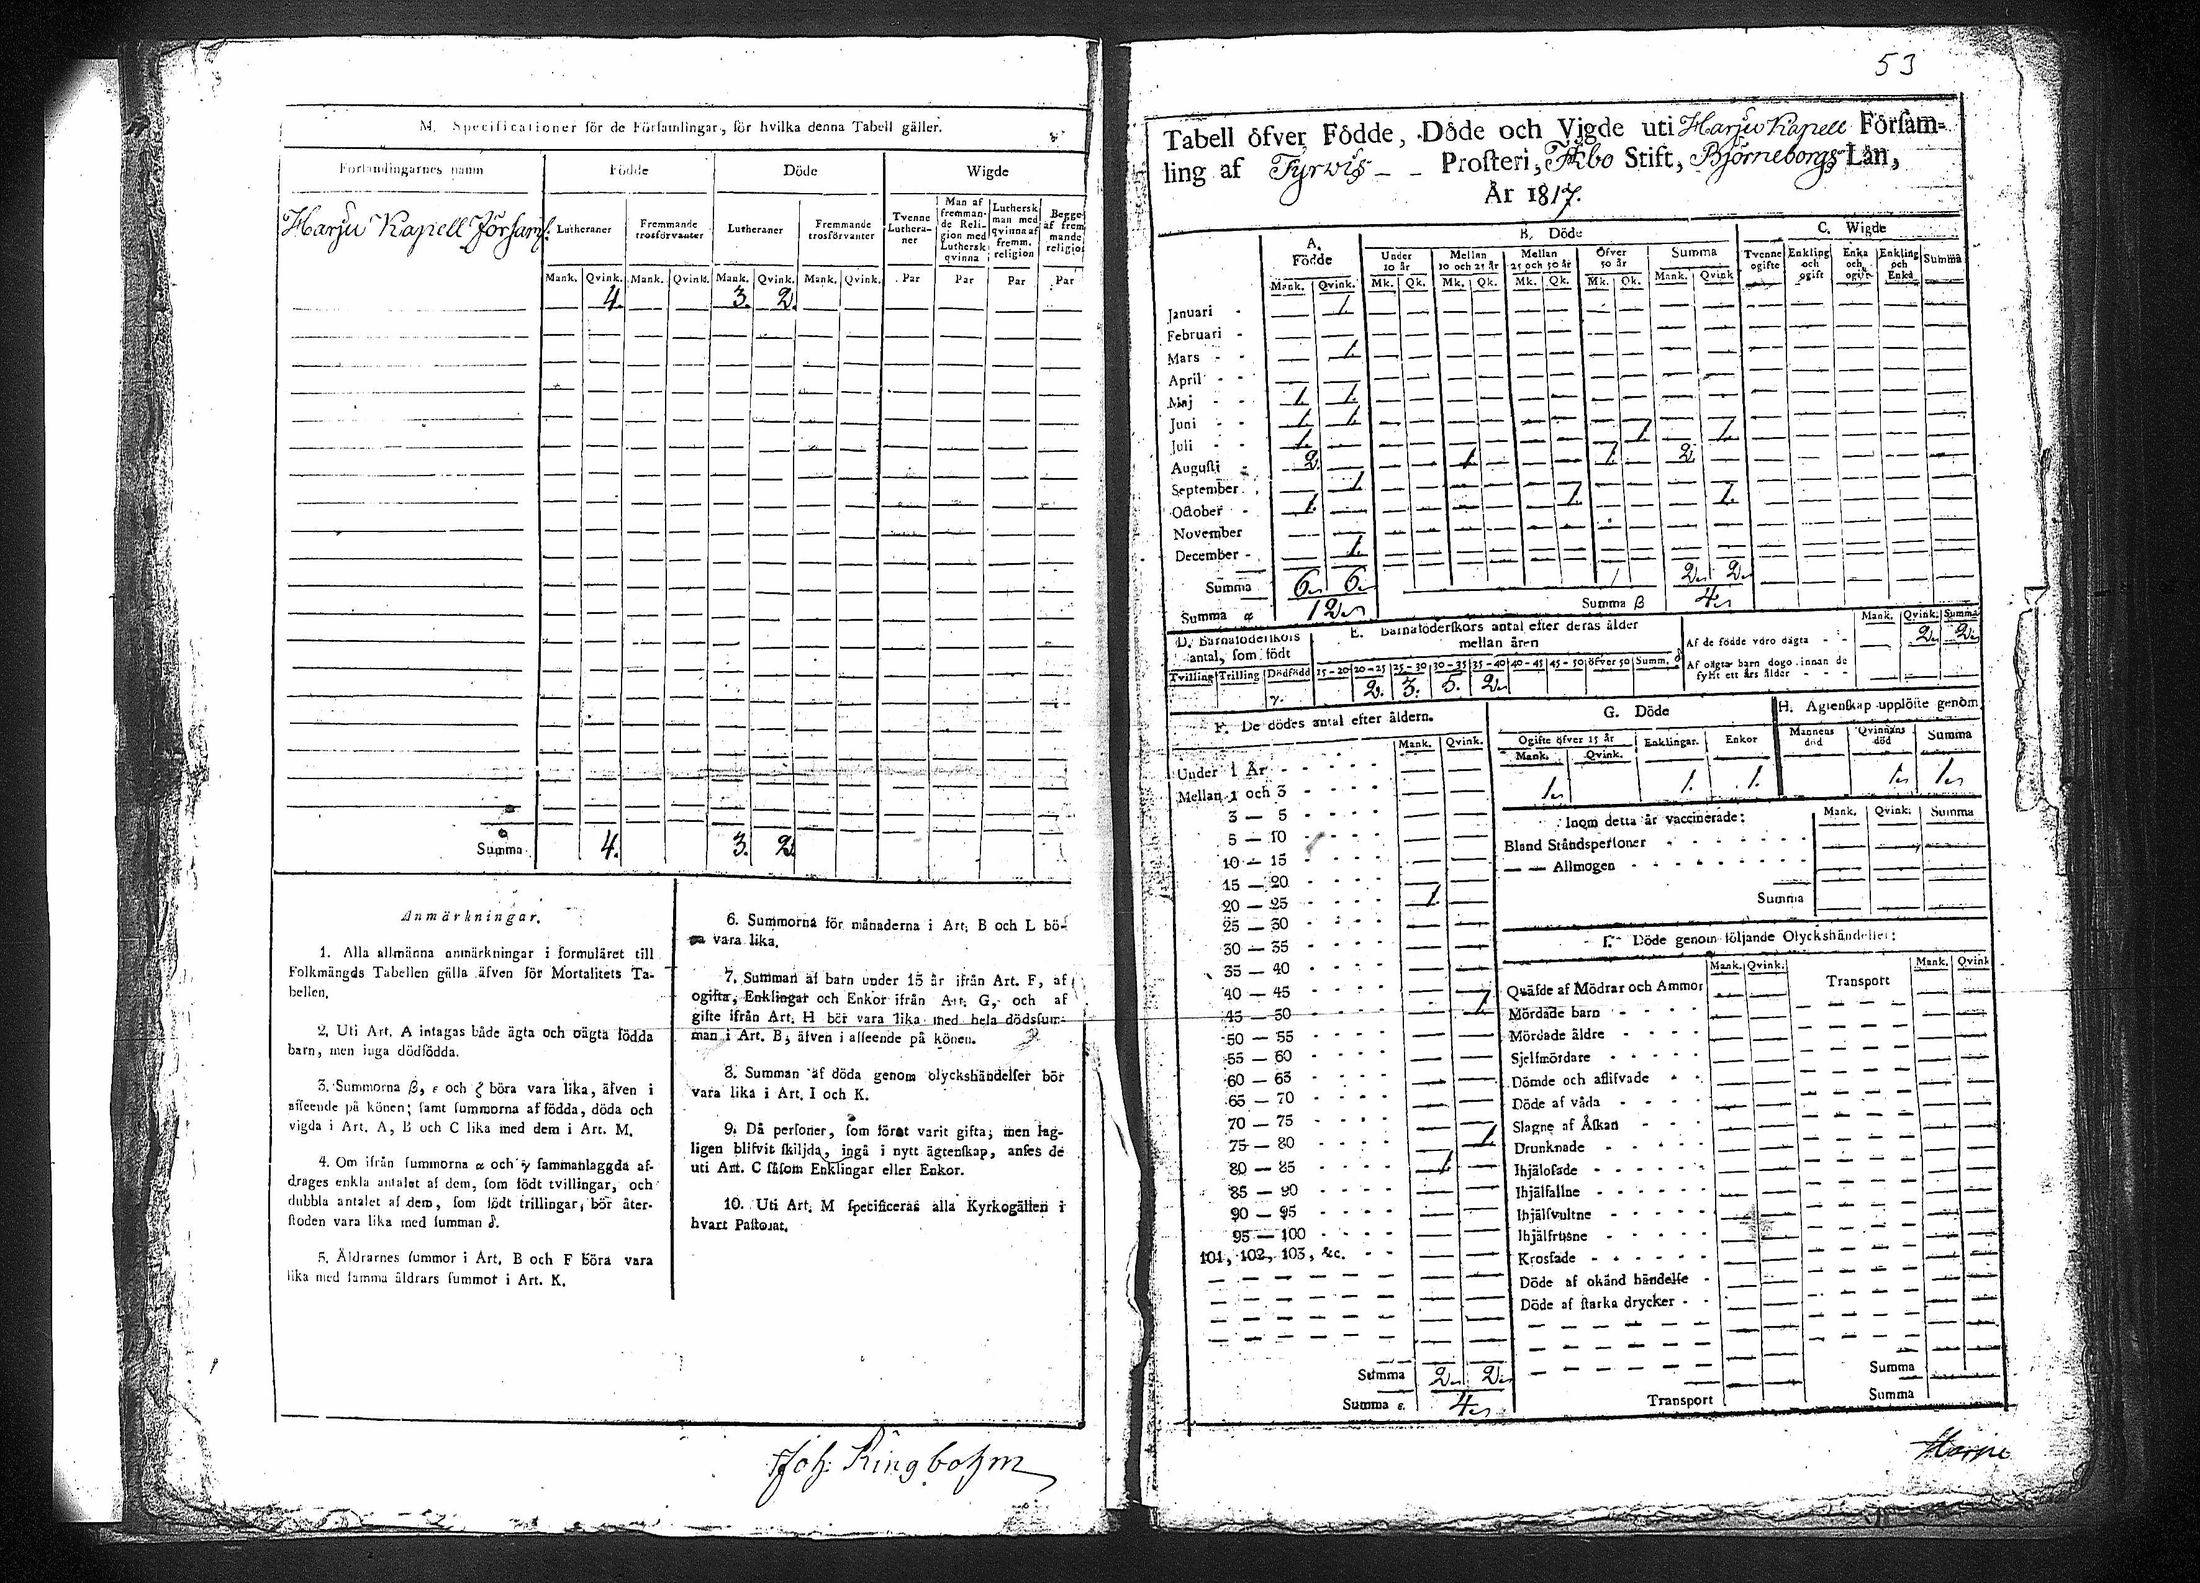 M. Specificationer för de Församlingar, för hvilka denna Tabell gäller.
Församlingarnes namn
Födde
Döde
Wigde
Harju Kapell Församl.
Lutheraner
Fremmande trosförvanter
Lutheraner
Fremmande trosförvanter
Tvenne Luthera-ner
Man af fremman-de Reli-gion med Luthersk qvinna
Luthersk man med qvinna af fremm. religion
Begge af frem mande religion
Mank. Qvink. Mank. Qvink. Mank. Qvink. Mank. Qvink. Par Par Par Par
4. 3. 2.
Summa 4. 3. 2.
Anmärkningar.
1. Alla allmänna anmärkningar i formuläret till
Folkmängds Tabellen gälla äfven för Mortalitets Ta-
bellen.
2. Uti Art. A intagas både ägta och oägta födda
barn, men inga dödfödda.
3. Summorna β, ε och ζ böra vara lika, äfven i
afseende på könen; samt summorna af födda, döda och
vigda i Art. A, B och C lika med dem i Art. M.
4. Om ifrån summorna α och γ sammanlaggda af-
drages enkla antalet af dem, som födt tvillingar, och
dubbla antalet af dem, som födt trillingar, bör åter-
stoden vara lika med summan δ.
5. Åldrarnes summor i Art. B och F böra vara
lika med samma åldrars summor i Art. K.
6. Summorna för månaderna i Art. B och L bö-
ra vara lika.
7. Summan af barn under 15 år ifrån Art. F, af
ogifta, Enklingar och Enkor ifrån Art. G, och af
gifte ifrån Art. H bör vara lika med hela dödssum-
man i Art. B, äfven i afseende på könen.
8. Summan af döda genom olyckshändelser bör
vara lika i Art. I och K.
9. Då personer, som förut varit gifta, men lag-
ligen blifvit skiljda, ingå i nytt ägtenskap, anses de
uti Art. C såsom Enklingar eller Enkor.
10. Uti Art. M specificeras alla Kyrkogällen i
hvart Pastorat.
Joh. Ringbohm
53
Tabell öfver Födde, Döde och Vigde uti Harju Kapell Försam-
ling af Tyrvis Prosteri, Åbo Stift, Björneborgs Län,
År 1817.
A. Födde
B. Döde
C. Wigde
Under 10 år
Mellan 10 och 25 år
Mellan 25 och 50 år
Öfver 50 år
Summa
Tvenne ogifte
Enkling och ogift
Enka och ogift
Enkling och Enka
Summa
Mank. Qvink. Mk. Qk. Mk. Qk. Mk. Qk. Mk. Qk. Mank. Qvink
Januari 1.
Februari
Mars 1.
April
Maj 1. 1.
Juni 1. 1.
Juli 1. 1. 1.
Augusti 2. 1. 1. 2
September 1.
October 1. 1. 1.
November
December 1.
Summa 6 6 2 2
Summa α 12 Summa β 4
D. Barnaföderskors antal, som födt
Tvilling Trilling Dödfödd
γ.
E. Barnaföderskors antal efter deras ålder mellan åren
15-20 20-25 25-30 30-35 35-40 40-45 45-50 öfver 50 Summ. δ
2. 3. 5. 2
Mank. Qvink. Summa
Af de födde voro oägta 2 2
Af oägta barn dogo innan de
fyllt ett års ålder
F. De dödes antal efter åldern.
Mank. Qvink.
Under 1 År
Mellan 1 och 3
3 — 5
5 — 10
10 — 15
15 — 20
20 — 25 1.
25 — 30
30 — 35
35 — 40
40 — 45
45 — 50 1.
50 — 55
55 — 60
60 — 65
65 — 70
70 — 75
75 — 80 1
80 — 85 1.
85 — 90
90 — 95
95 — 100
101, 102, 103, &c.
Summa 2 2
Summa ε. 4
G. Döde
Ogifte öfver 15 år
Enklingar.
Enkor
Mank. Qvink.
1 1. 1.
H. Ägtenskap upplöste genom
Mannens död
Qvinnans död
Summa
1 1
Inom detta år vaccinerade:
Mank. Qvink. Summa
Bland Ståndspersoner
— — Allmogen
Summa
I. Döde genom följande Olyckshändelser:
Mank. Qvink.
Transport
Mank. Qvink
Quäfde af Mödrar och Ammor
Mördade barn
Mördade äldre
Sjelfmördare
Dömde och aflifvade
Döde af våda
Slagne af Åskan
Drunknade
Ihjälosade
Ihjälfallne
Ihjälsvultne
Ihjälfrusne
Krossade
Döde af okänd händelse
Döde af starka drycker
Transport
Summa
Summa
Harju